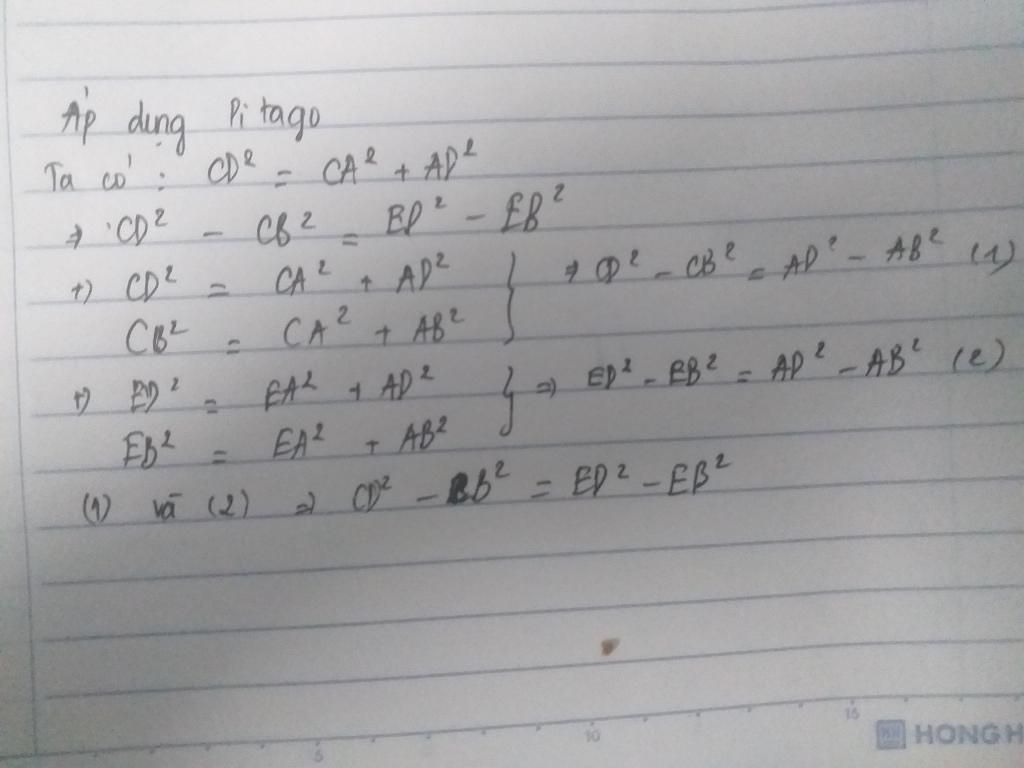 Áp dụng Pitago
Ta có : CD² = CA² + AD²
⇒ CD² - CB² = ED² - EB²
+) CD² = CA² + AD² } ⇒ CD² - CB² = AD² - AB² (1)
CB² = CA² + AB²
+) ED² = EA² + AD² } ⇒ ED² - EB² = AD² - AB² (2)
EB² = EA² + AB²
(1) và (2) ⇒ CD² - CB² = ED² - EB²
5 10 15
HONG H